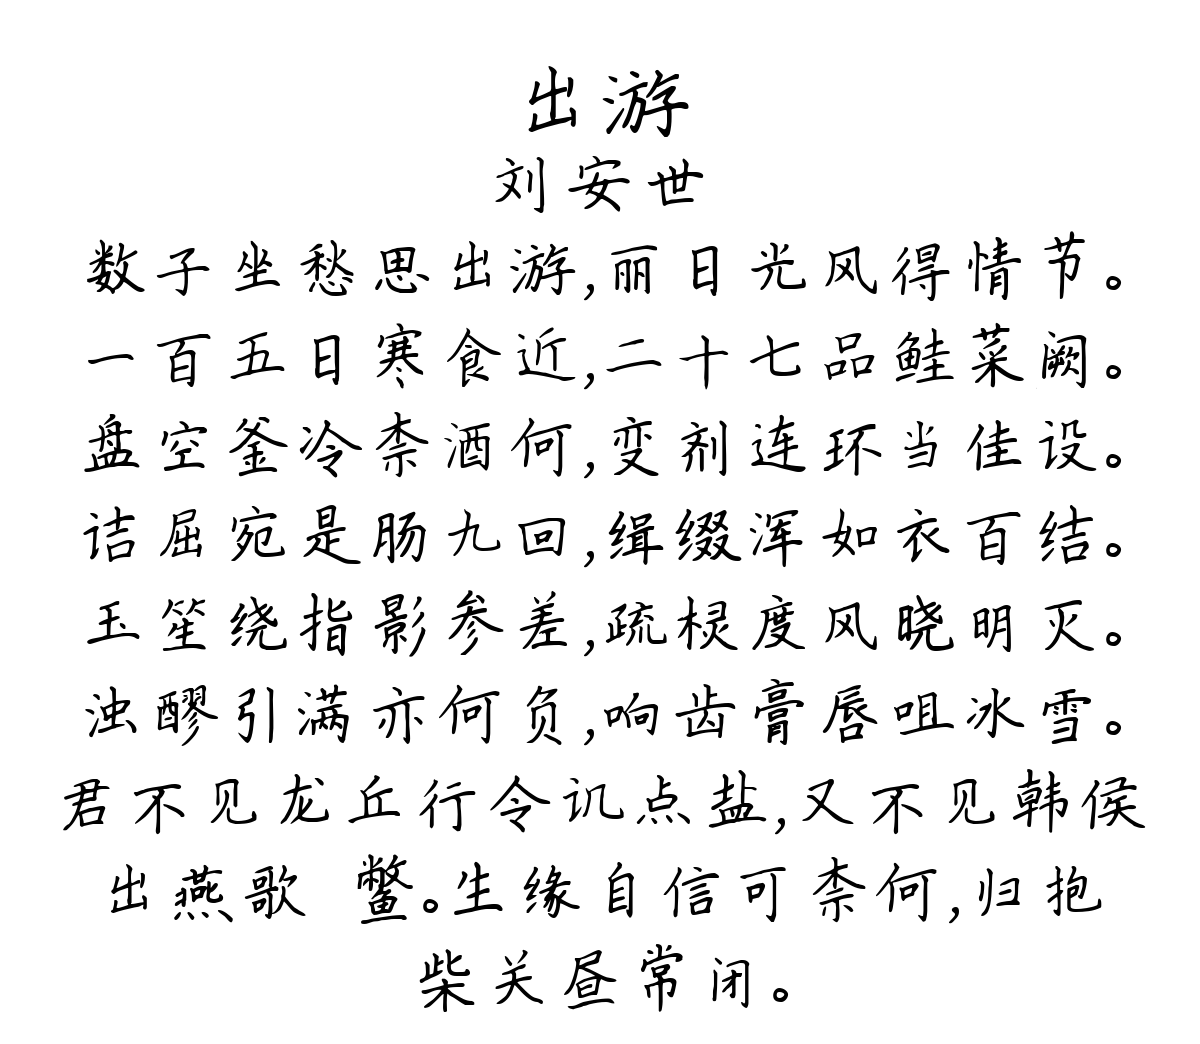 出游
刘安世
数子坐愁思出游,丽日光风得情节。
一百五日寒食近,二十七品鲑菜阙。
盘空釜冷柰酒何,变剂连环当佳设。
诘屈宛是肠九回,缉缀浑如衣百结。
玉笙绕指影参差,疏棂度风晓明灭。
浊醪引满亦何负,响齿膏唇咀冰雪。
君不见龙丘行令讥点盐,又不见韩侯
出燕歌 鳖。生缘自信可柰何,归抱
柴关昼常闭。